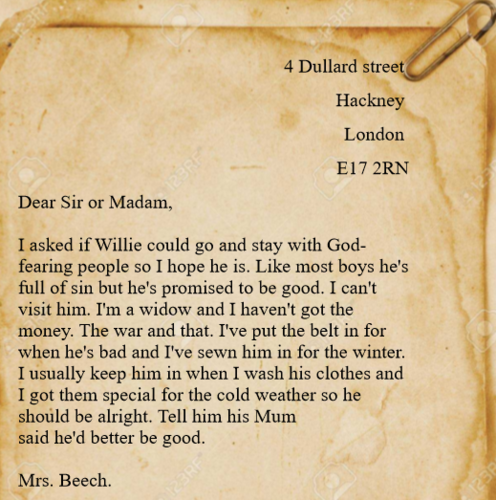 4 Dullard street
Hackney
London
E17 2RN
Dear Sir or Madam,
I asked if Willie could go and stay with God-
fearing people so I hope he is. Like most boys he's
full of sin but he's promised to be good. I can't
visit him. I'm a widow and I haven't got the
money. The war and that. I've put the belt in for
when he's bad and I've sewn him in for the winter.
I usually keep him in when I wash his clothes and
I got them special for the cold weather so he
should be alright. Tell him his Mum
said he'd better be good.
Mrs. Beech.